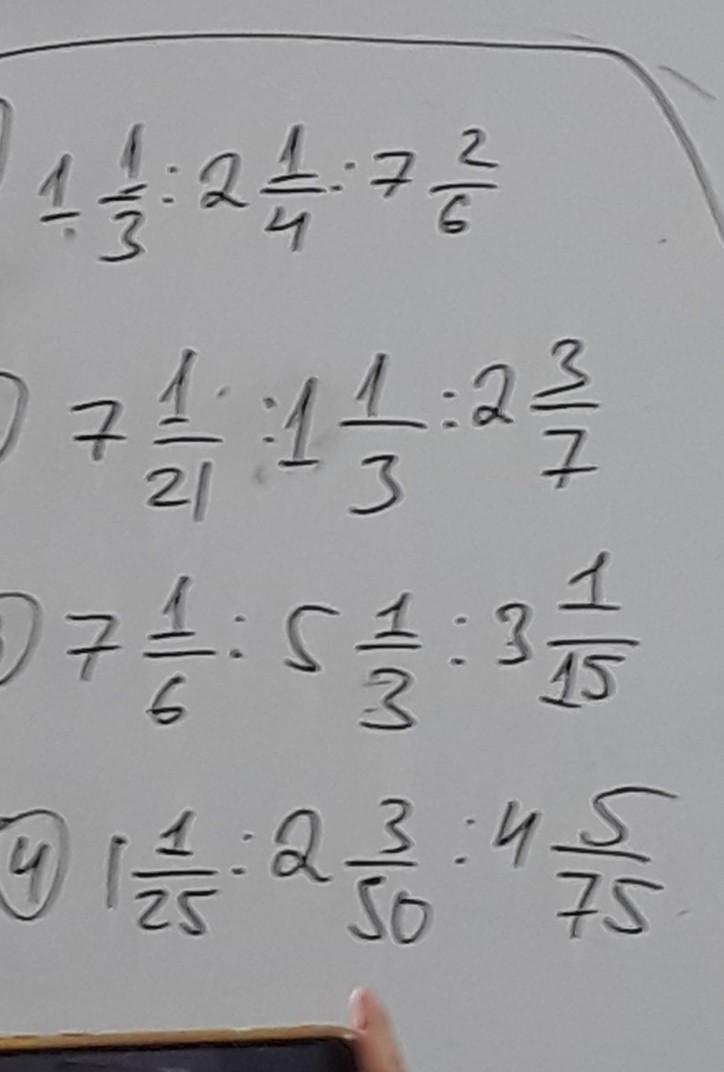 1 1/3 : 2 1/4 : 7 2/6
7 1/21 : 1 1/3 : 2 3/7
7 1/6 : 5 1/3 : 3 1/15
④ 1 1/25 : 2 3/50 : 4 5/75